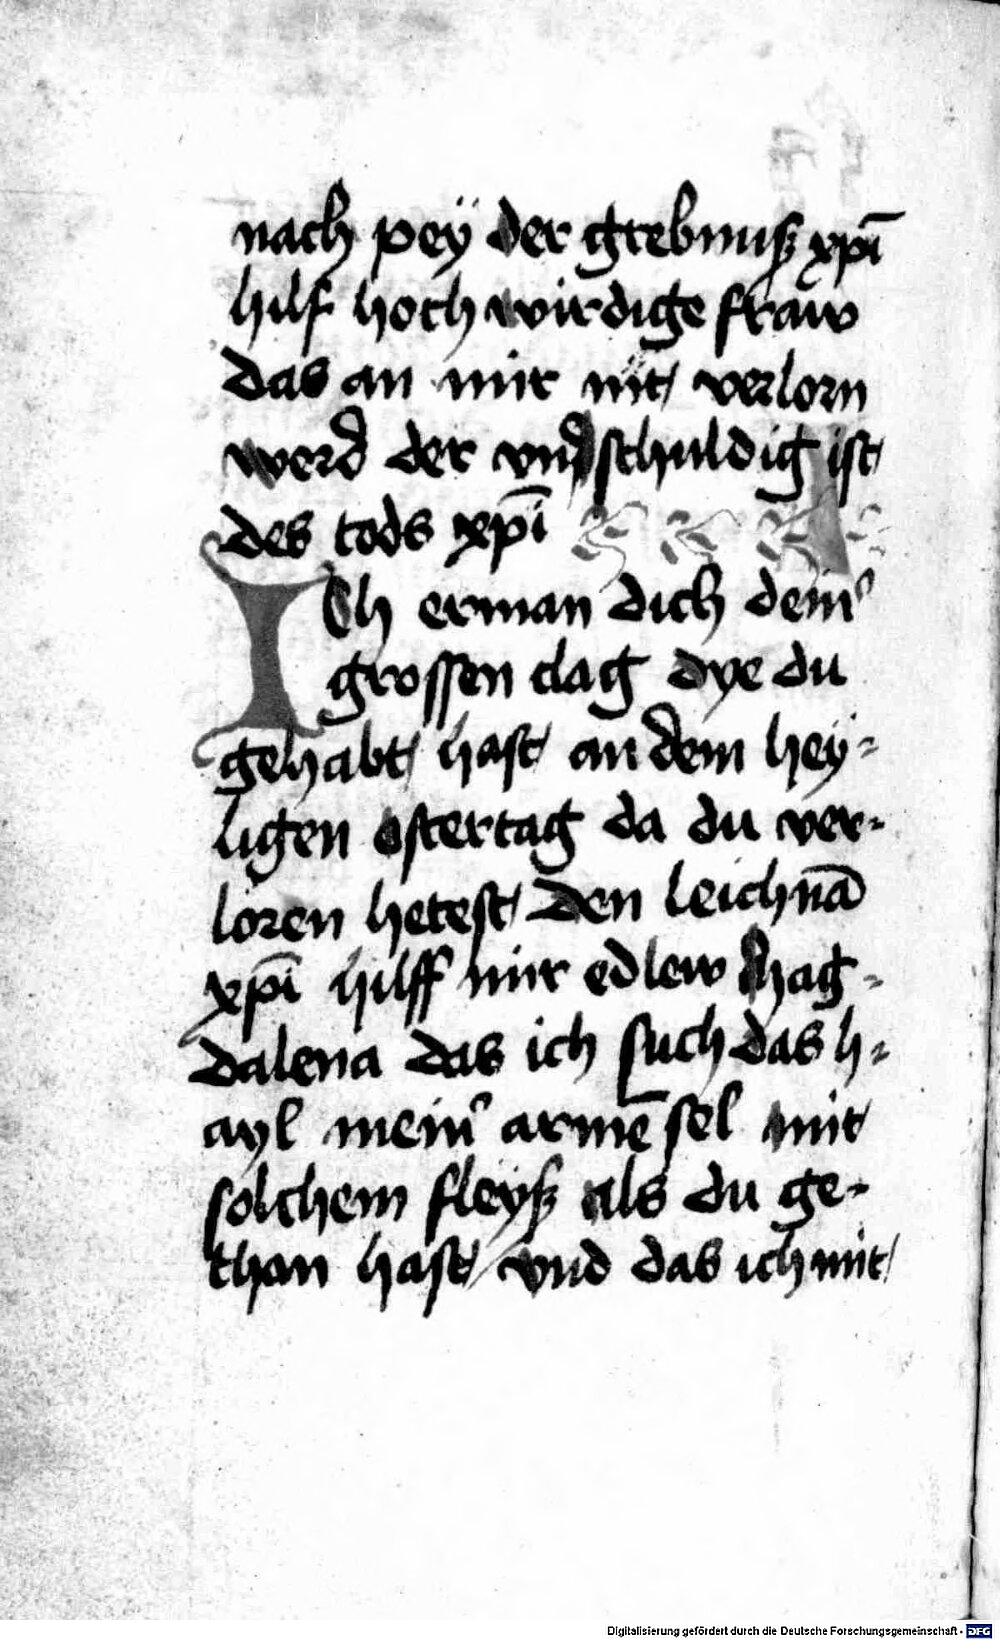 nach peÿ der grebnuſʒ xp̄i
hilf hochwirdige fraw
das an mir nit verlorn
werd der vnſchuldig iſt
des tods xp̄i
ICh erman dich dein᷑
groſſen clag dye du
gehabt haſt an dem heÿ-
ligen oſtertag da du ver-
loren heteſt den leichnā
xp̄i hilff mir edlew Mag-
dalena das ich ſuch das h-
ayl mein᷑ armē ſel mit
ſolchem fleyſʒ als du ge-
than haſt / vnd das ich mit
Digitalisierung gefördert durch die Deutsche Forschungsgemeinschaft - DFG